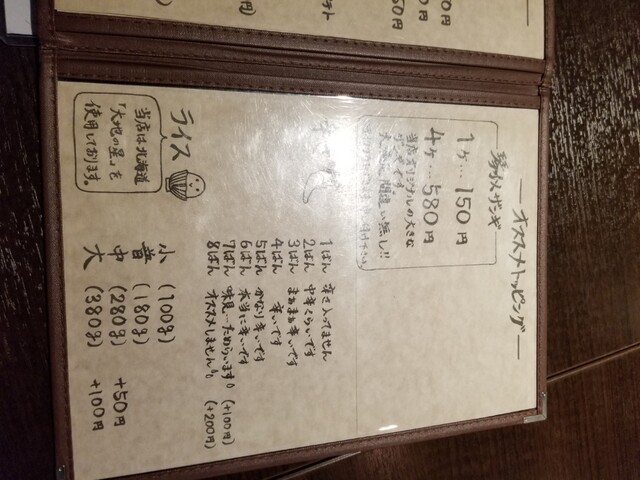 オススメトッピング
ザンギ
1ヶ…150円
4ヶ…580円
当店オリジナルの大きな
ザンギです。
大満足間違い無し!!
辛さ
1ばん 辛さ入ってません
2ばん 中辛くらいです
3ばん まぁまぁ辛いです
4ばん 辛いです
5ばん かなり辛いです
6ばん 本当に辛いです
7ばん (+100円)
8ばん オススメしません (+200円)
ライス
当店は北海道
「大地の星」を
使用しております。
小 (100g)
普 (180g)
中 (280g) +50円
大 (380g) +100円